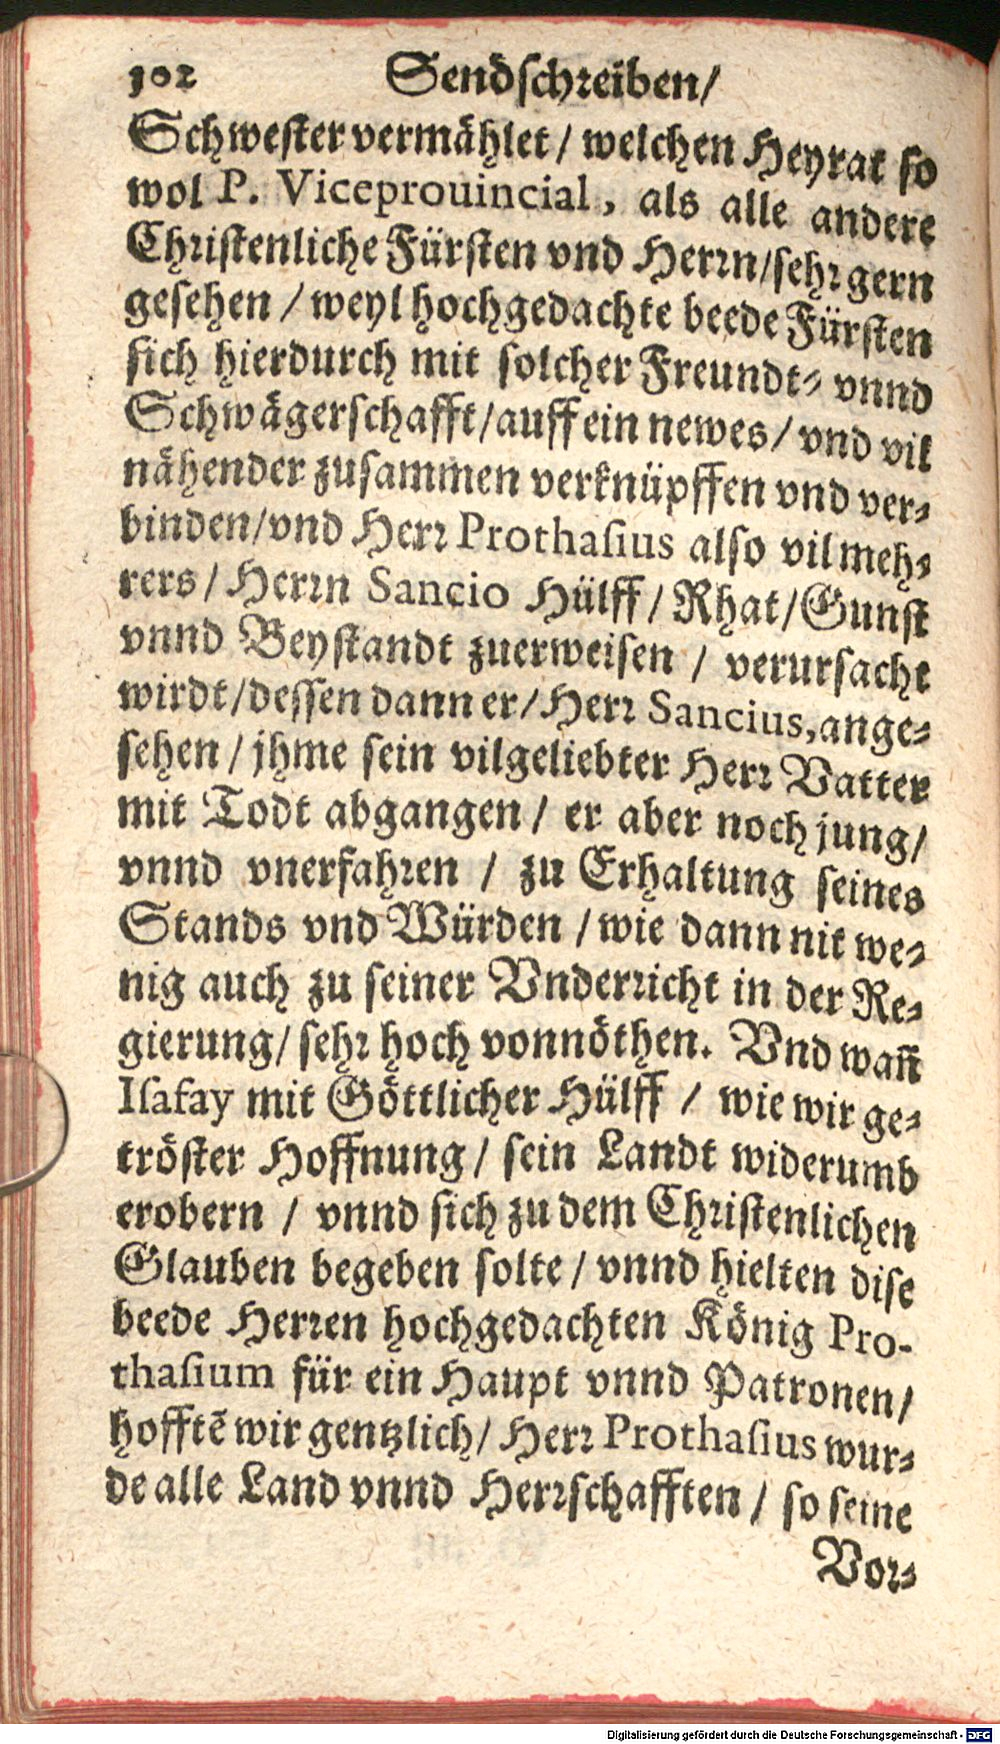 102 Sendschreiben/
Schwester vermählet / welchen Heyrat so
wol P. Viceprouincial, als alle andere
Christenliche Fürsten vnd Herrn/sehr gern
gesehen / weyl hochgedachte beede Fürsten
sich hierdurch mit solcher Freundt- vnnd
Schwägerschafft/auff ein newes/ vnd vil
nähender zusammen verknüpffen vnd ver-
binden/vnd Herr Prothasius also vil meh-
rers / Herrn Sancio Hülff / Rhat/Gunst
vnnd Beystandt zuerweisen / verursacht
wirdt/dessen dann er/Herr Sancius,ange-
sehen / jhme sein vilgeliebter Herr Vatter
mit Todt abgangen / er aber noch jung/
vnnd vnerfahren / zu Erhaltung seines
Stands vnd Würden / wie dann nit we-
nig auch zu seiner Vnderricht in der Re-
gierung/ sehr hoch vonnöthen. Vnd wañ
Isafay mit Göttlicher Hülff / wie wir ge-
tröster Hoffnung / sein Landt widerumb
erobern / vnnd sich zu dem Christenlichen
Glauben begeben solte / vnnd hielten dise
beede Herren hochgedachten König Pro-
thasium für ein Haupt vnnd Patronen/
hofftē wir gentzlich/ Herr Prothasius wur-
de alle Land vnnd Herrschafften / so seine
Vor-
Digitalisierung gefördert durch die Deutsche Forschungsgemeinschaft - DFG